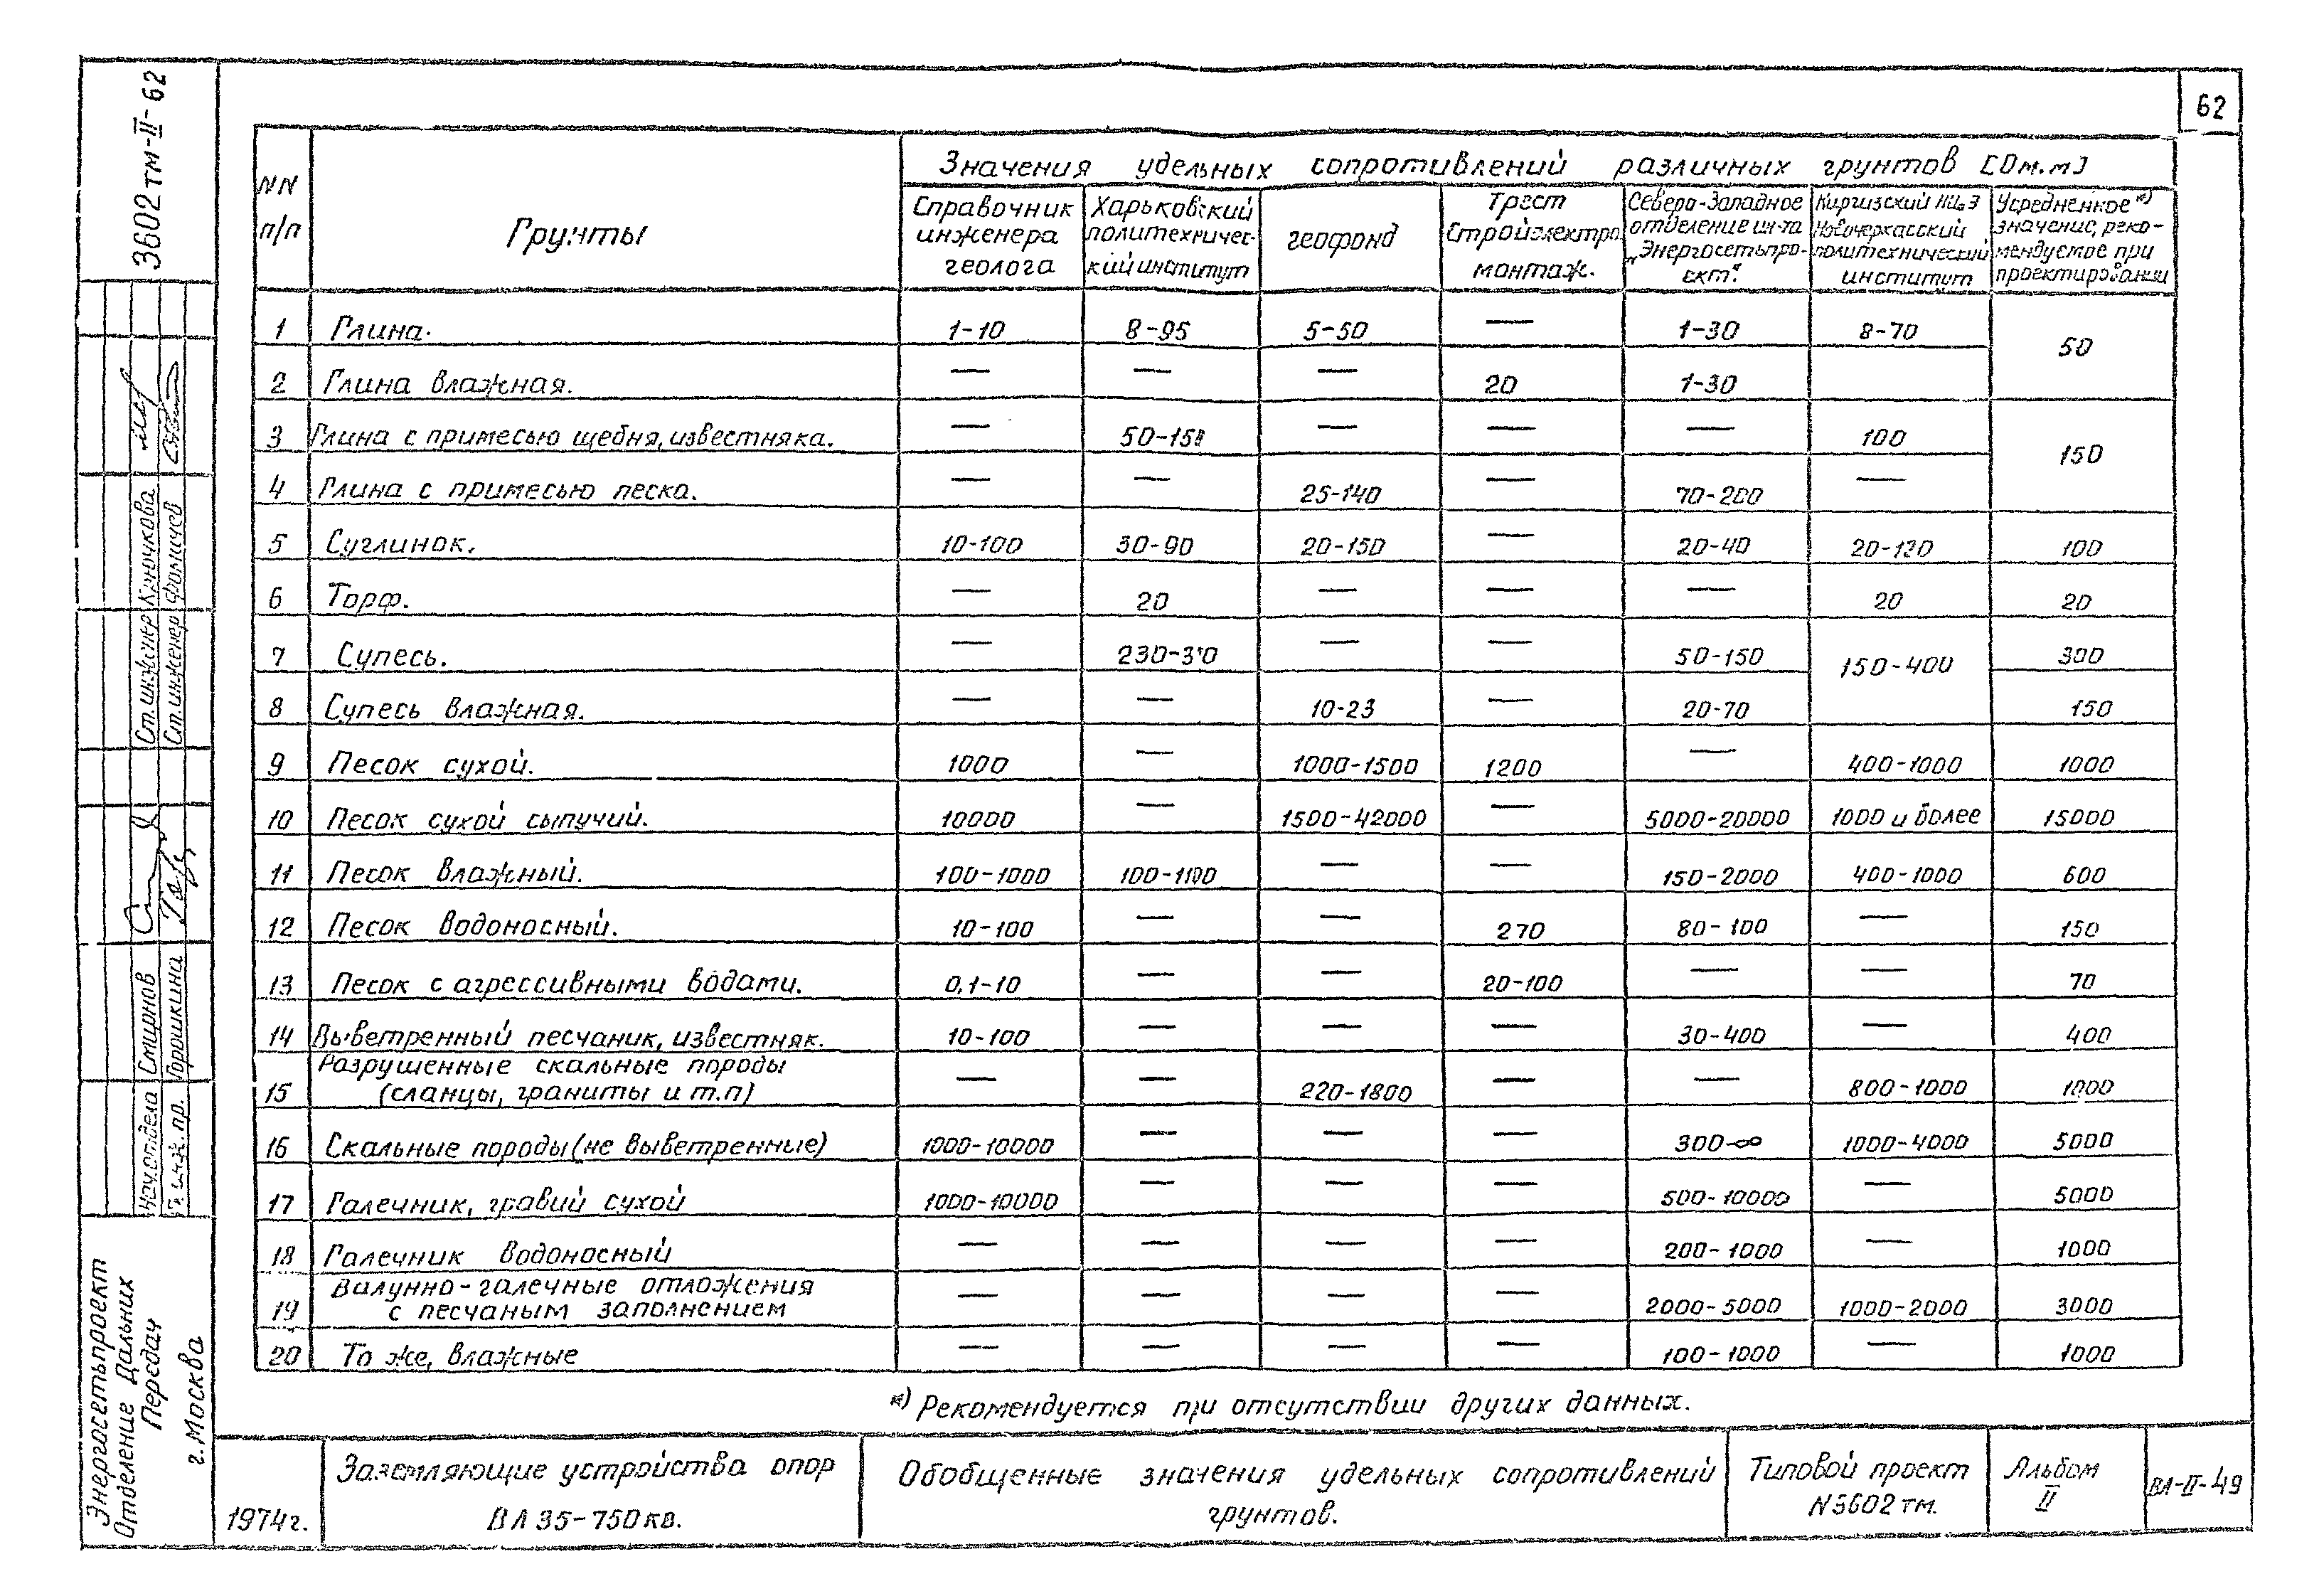 62
3602тм-II-62
NN п/п
Грунты
Значения удельных сопротивлений различных грунтов [Ом.м]
Справочник инженера геолога
Харьковский политехничес-кий институт
геофонд
Трест Стройэлектро монтаж.
Северо-Западное отделение ин-та „Энергосетьпро-ект".
Киргизский НИ и Э Новочеркасский политехнический институт
Усредненное ж) значение, реко-мендуемое при проектировании
1 Глина. 1-10 8-95 5-50 — 1-30 8-70 50
2 Глина влажная. — — — 20 1-30
3 Глина с примесью щебня, известняка. — 50-150 — — — 100 150
4 Глина с примесью песка. — — 25-140 — 70-200 —
5 Суглинок. 10-100 30-90 20-150 — 20-40 20-120 100
6 Торф. — 20 — — — 20 20
7 Супесь. — — — 50-150 150-400 300
8 Супесь влажная. — — 10-23 — 20-70 150
9 Песок сухой. 1000 — 1000-1500 1200 — 400-1000 1000
10 Песок сухой сыпучий. 10000 — 1500-42000 — 5000-20000 1000 и более 15000
11 Песок влажный. 100-1000 100-1100 — — 150-2000 400-1000 600
12 Песок водоносный. 10-100 — — 270 80-100 — 150
13 Песок с агрессивными водами. 0,1-10 — — 20-100 — — 70
14 Выветренный песчаник, известняк. 10-100 — — — 30-400 — 400
Разрушенные скальные породы
15 (сланцы, граниты и т.п) — — 220-1800 — — 800-1000 1000
16 Скальные породы (не выветренные) 1000-10000 — — — 300-∞ 1000-4000 5000
17 Галечник, гравий сухой 1000-10000 — — — 500-10000 — 5000
18 Галечник водоносный — — — — 200-1000 — 1000
Валунно-галечные отложения
19 с песчаным заполнением — — — — 2000-5000 1000-2000 3000
20 То же, влажные — — — — 100-1000 — 1000
ж) Рекомендуется при отсутствии других данных.
Ст. инженер Крючкова
Ст. инженер Фомичев
Нач. отдела Смирнов
Гл. инж. пр. Горошкина
Энергосетьпроект
Отделение Дальних
Передач
г. Москва
1974г.
Заземляющие устройства опор
ВЛ 35-750 кв.
Обобщенные значения удельных сопротивлений
грунтов.
Типовой проект
N3602тм.
Альбом
II
ВЛ-II-49